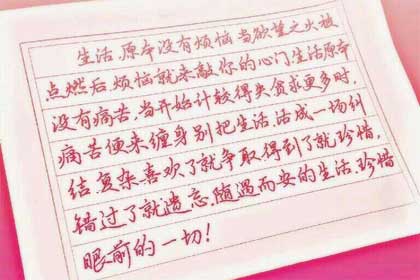 生活,原本没有烦恼,当欲望之火被
点燃后,烦恼就来敲你的心门生活原本
没有痛苦,当开始计较得失贪求更多时,
痛苦便来缠身别把生活,活成一场纠
结,复杂,喜欢了就争取得到了就珍惜,
错过了就遗忘,随遇而安的生活,珍惜
眼前的一切!